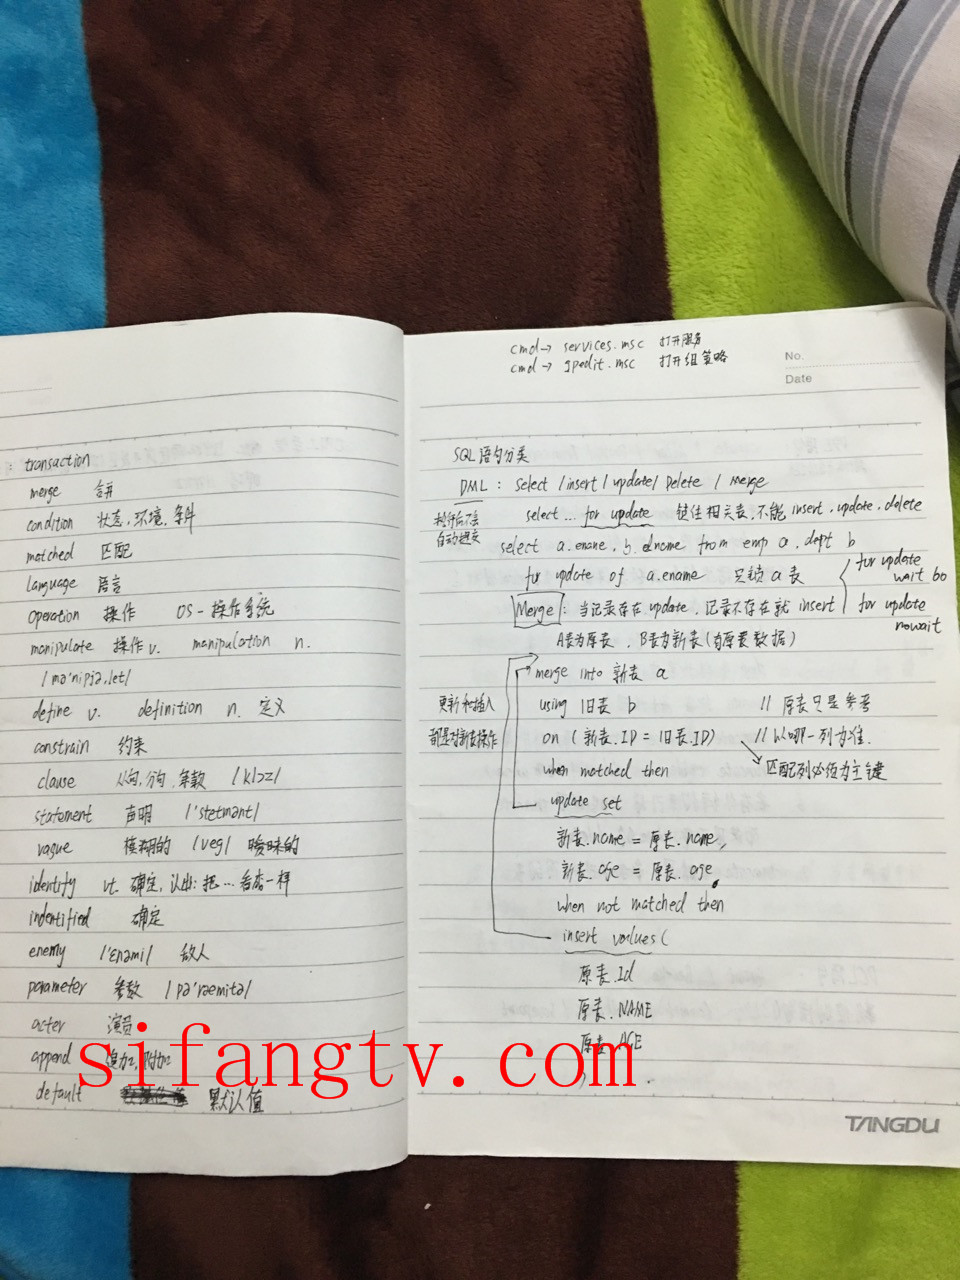 : transaction
merge 合并
condition 状态,环境,条件
matched 匹配
language 语言
operation 操作 OS-操作系统
manipulate 操作v. manipulation n.
/mə'nipjə,let/
define v. definition n. 定义
constrain 约束
clause 从句,分句,条款 /klɔz/
statement 声明 /'stetmənt/
vague 模糊的 /veg/ 暧昧的
identify vt. 确定,认出;把…看成一样
indentified 确定
enemy /'ɛnəmi/ 敌人
parameter 参数 /pə'ræmitə/
acter 演员
append 追加,附加
default 默认值
cmd→ services.msc 打开服务
cmd→ gpedit.msc 打开组策略
No.
Date
SQL语句分类
DML: select /insert/update/Delete / Merge
执行后不会自动提交
select … for update 锁住相关表,不能insert,update,delete
select a.ename, b.dname from emp a, dept b
for update of a.ename 只锁a表
for update
wait 60
Merge: 当记录存在update,记录不存在就insert
for update
nowait
A表为原表,B表为新表(为原表数据)
merge into 新表 a
更新和插入
都是对新表操作
using 旧表 b // 原表只是参考
on (新表.ID = 旧表.ID) // 以哪一列为准.
when matched then 匹配列必须为主键
update set
新表.name = 原表.name,
新表.age = 原表.age
when not matched then
insert values(
原表.Id
原表.NAME
原表.AGE
)
sifangtv.com
TANGDU